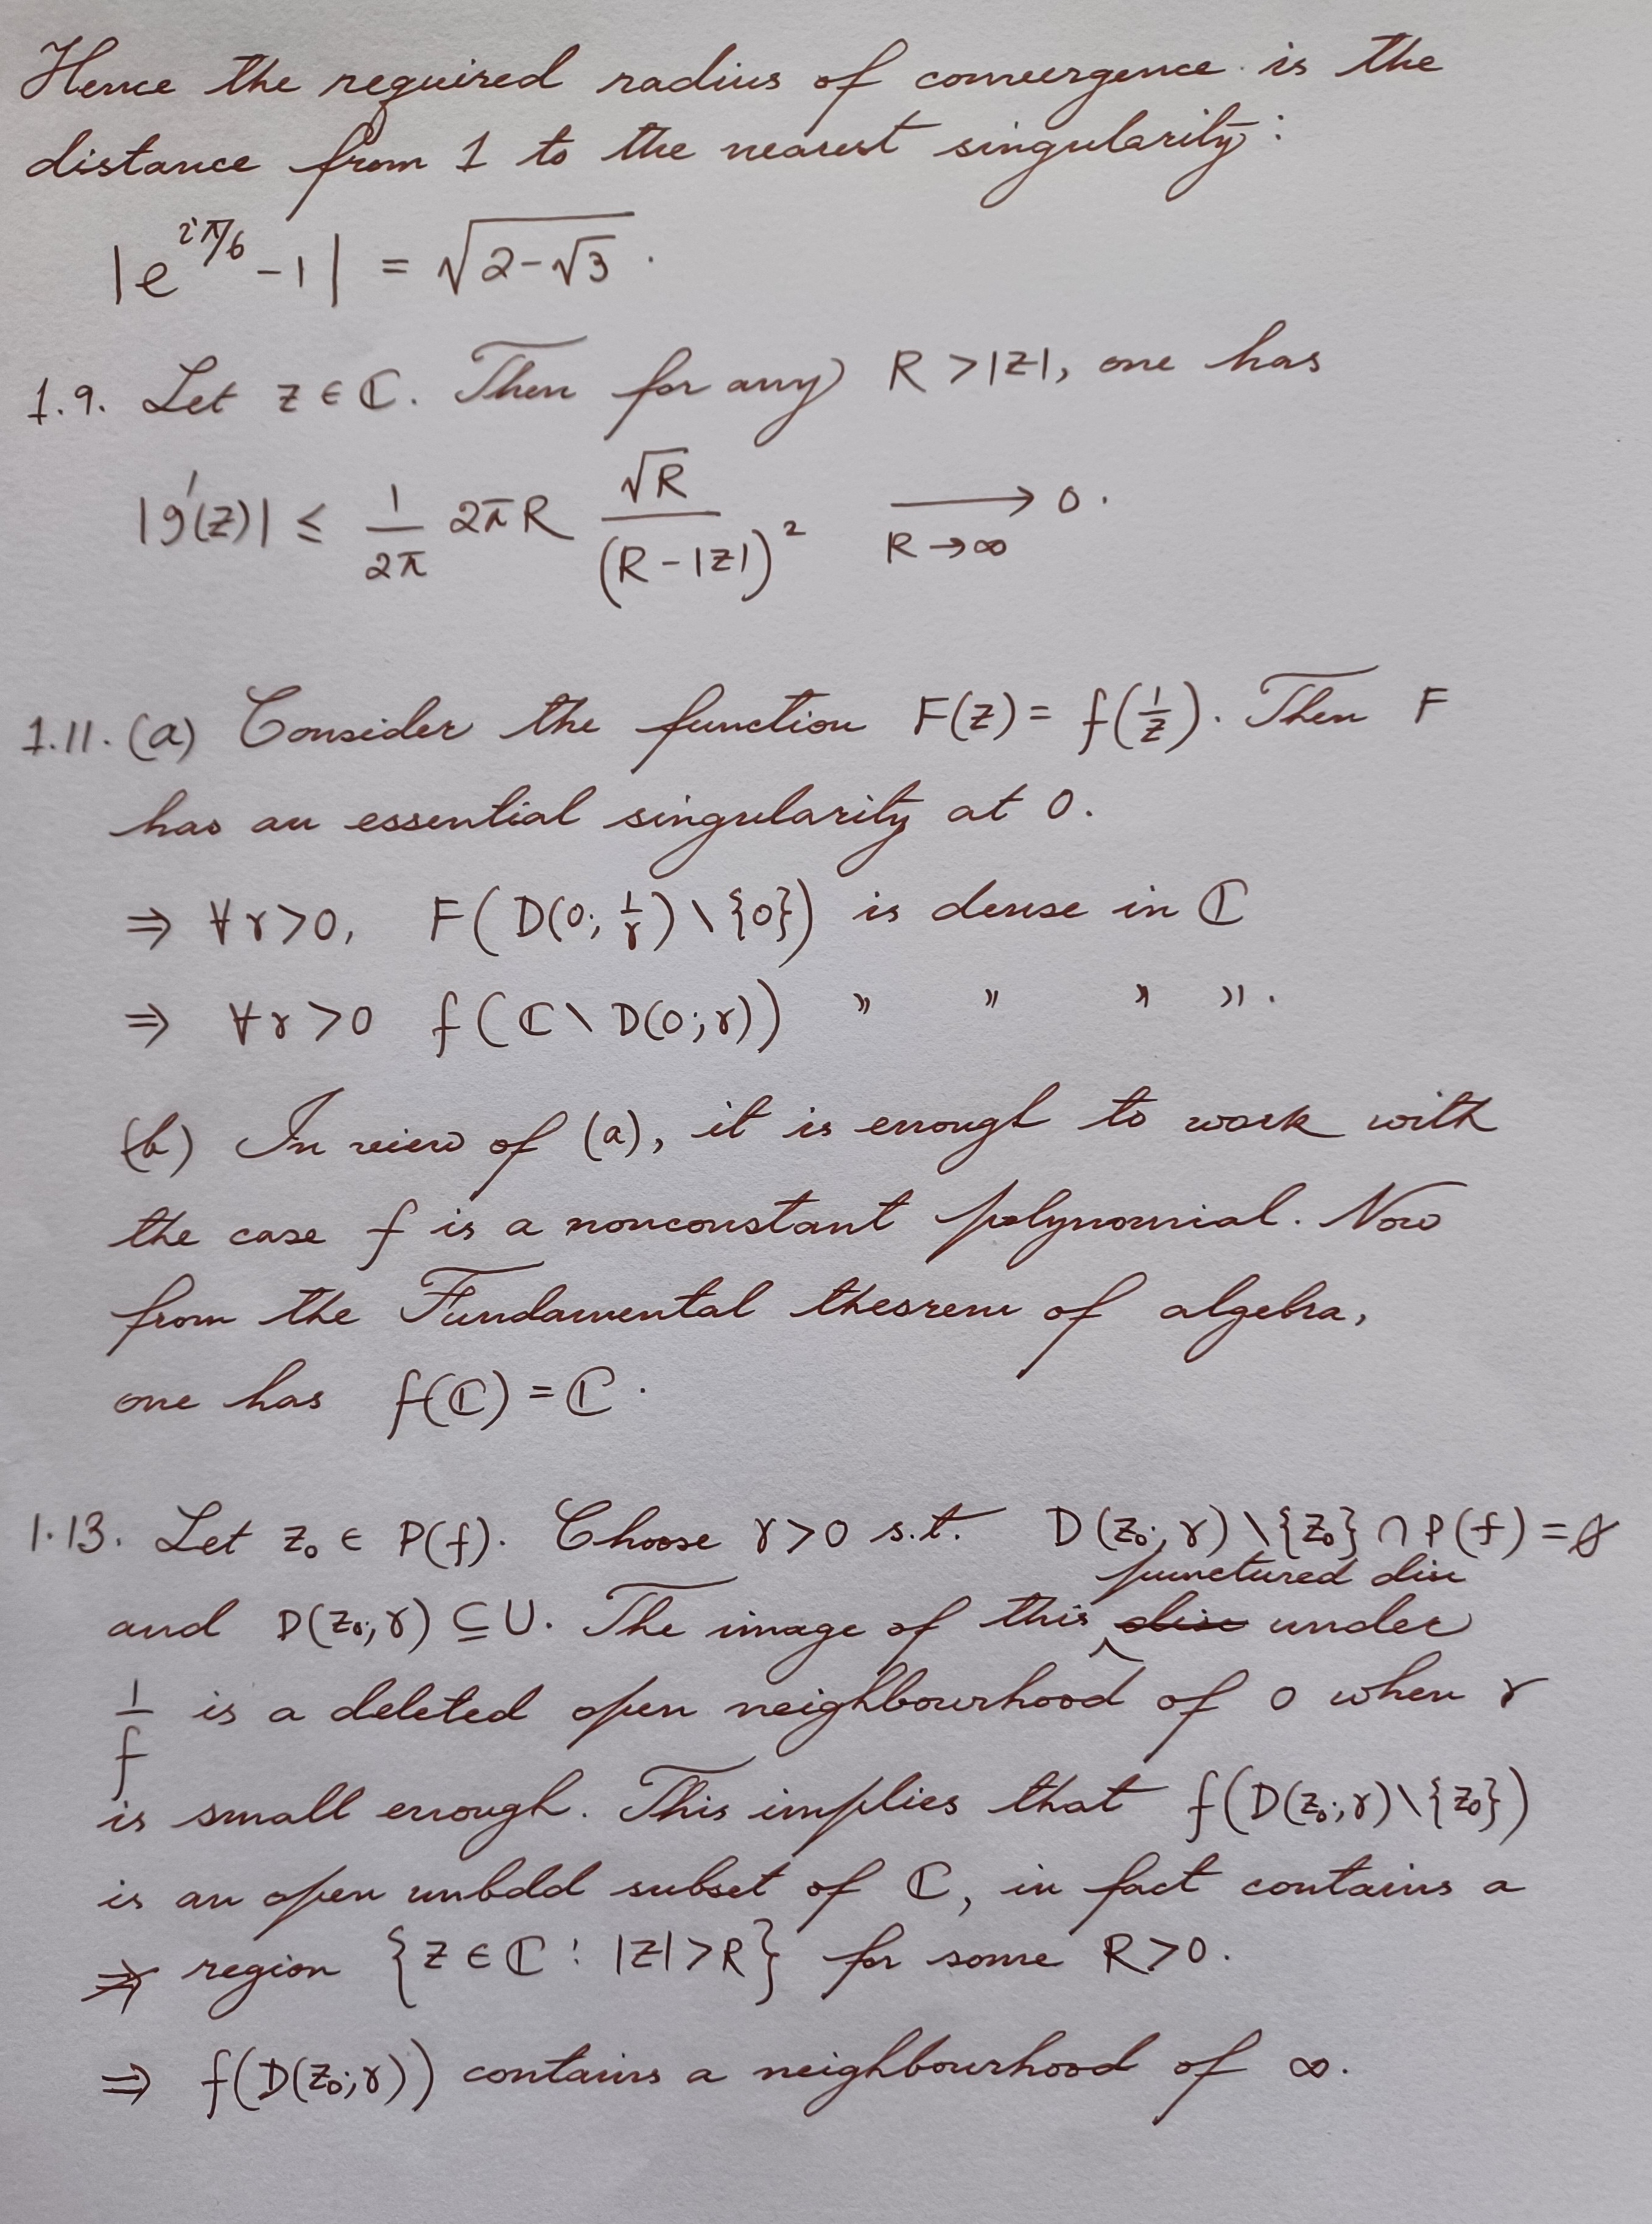 Hence the required radius of convergence is the
distance from 1 to the nearest singularity:
|e^{iπ/6} - 1| = √(2-√3).
1.9. Let z ∈ ℂ. Then for any R > |z|, one has
|g'(z)| ≤ \frac{1}{2π} 2πR \frac{√R}{(R-|z|)^2} \xrightarrow[R→∞]{} 0.
1.11. (a) Consider the function F(z) = f(\frac{1}{z}). Then F
has an essential singularity at 0.
⇒ ∀r>0, F(D(0; \frac{1}{r}) \ {0}) is dense in ℂ
⇒ ∀r>0 f(ℂ \ D(0;r)) " " " ".
(b) In view of (a), it is enough to work with
the case f is a nonconstant polynomial. Now
from the Fundamental theorem of algebra,
one has f(ℂ) = ℂ.
1.13. Let z₀ ∈ P(f). Choose r>0 s.t. D(z₀;r) \ {z₀} ∩ P(f) = ∅
punctured disc
and D(z₀;r) ⊆ U. The image of this disc under
\frac{1}{f} is a deleted open neighbourhood of 0 when r
is small enough. This implies that f(D(z₀;r) \ {z₀})
is an open unbdd subset of ℂ, in fact contains a
⇒ region {z ∈ ℂ : |z|>R} for some R>0.
⇒ f(D(z₀;r)) contains a neighbourhood of ∞.